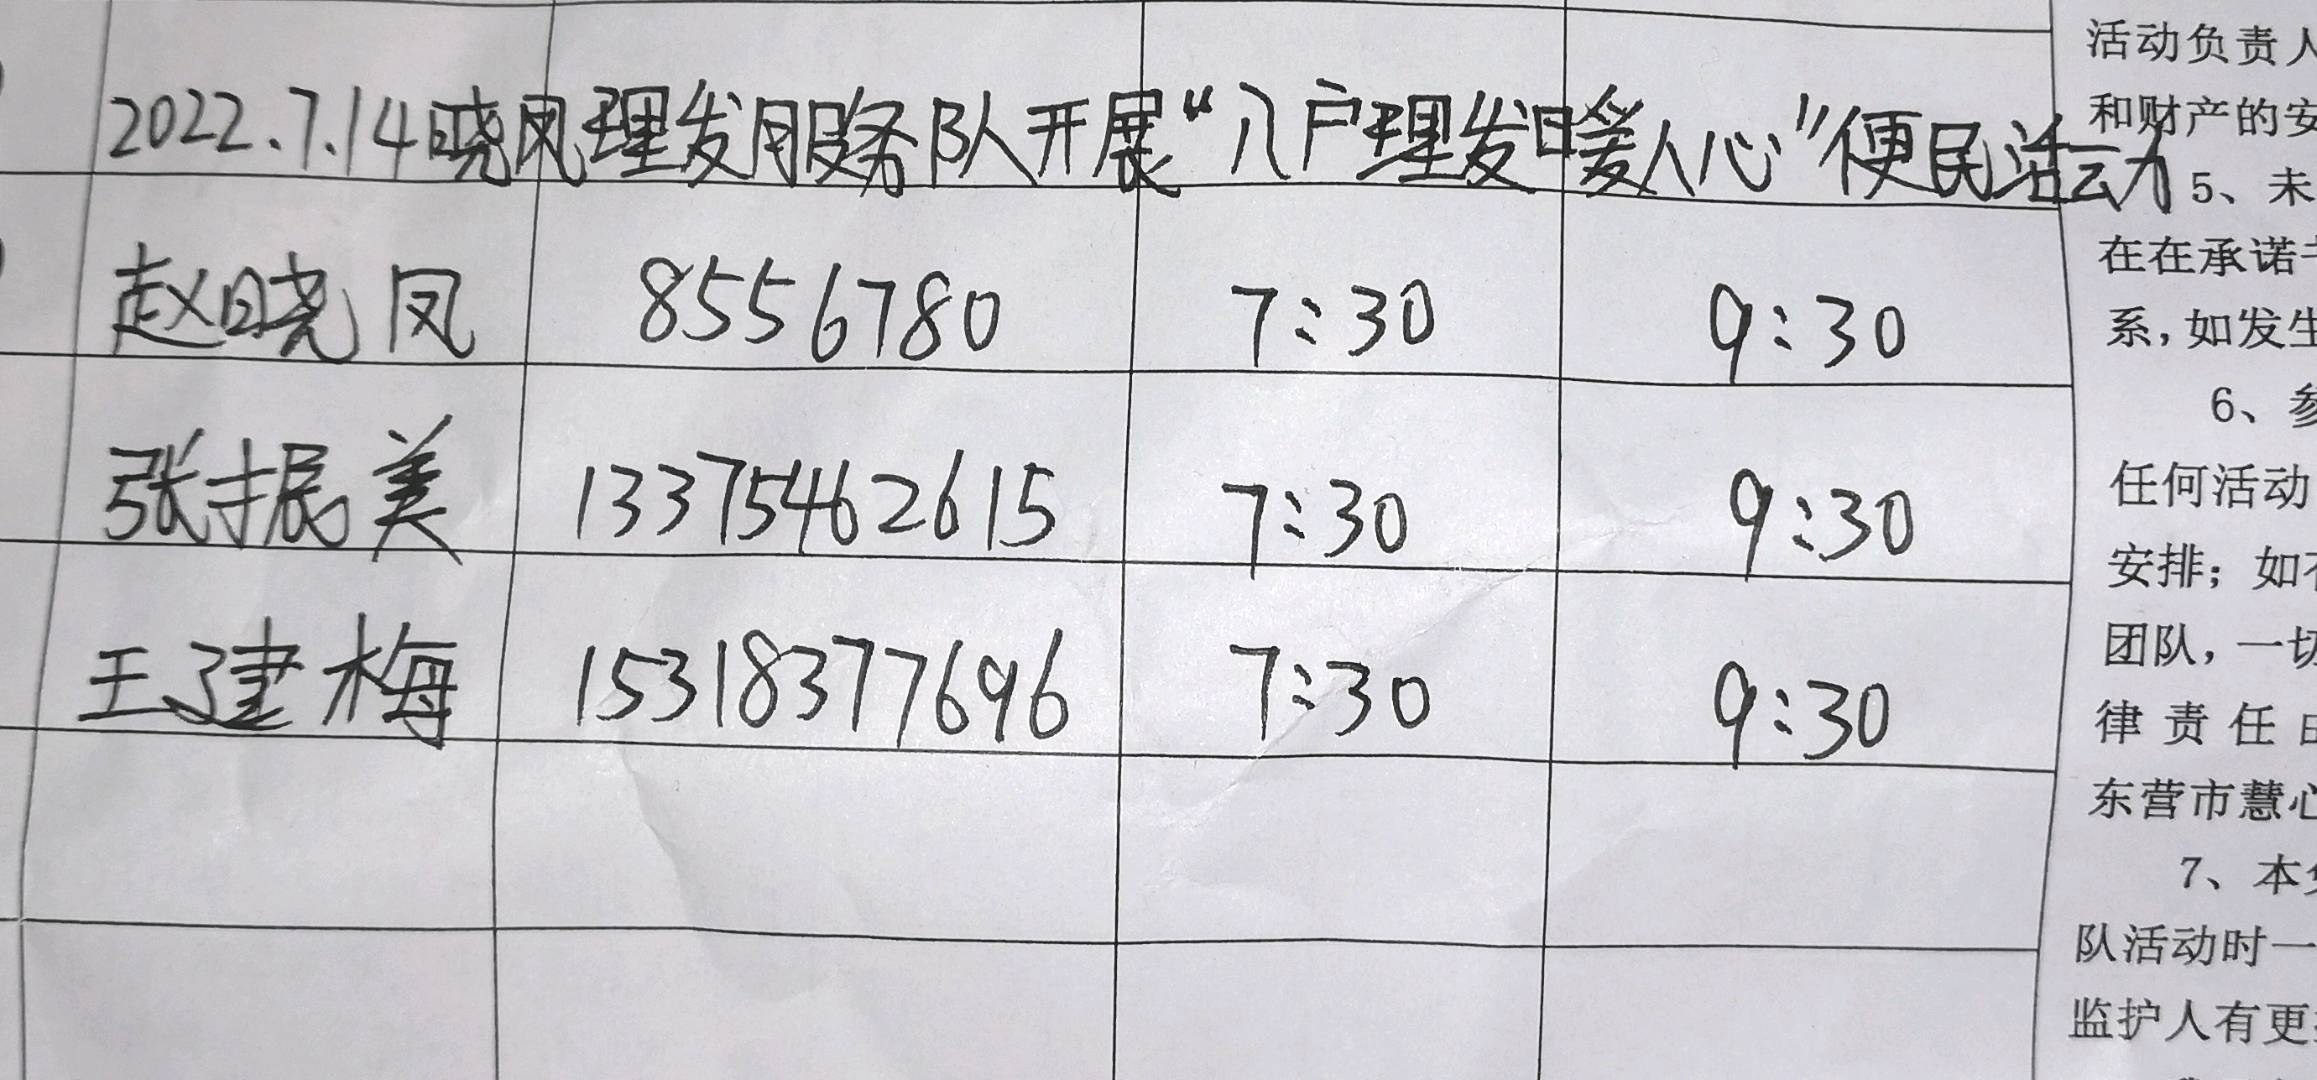 2022.7.14晓凤理发服务队开展“入户理发暖人心”便民活动
赵晓凤 8556780 7:30 9:30
张振美 13375462615 7:30 9:30
王建梅 15318377696 7:30 9:30
活动负责人
和财产的安
5、未
在在承诺书
系,如发生
6、参
任何活动
安排;如有
团队,一切
律责任由
东营市慧心
7、本
队活动时一
监护人有更